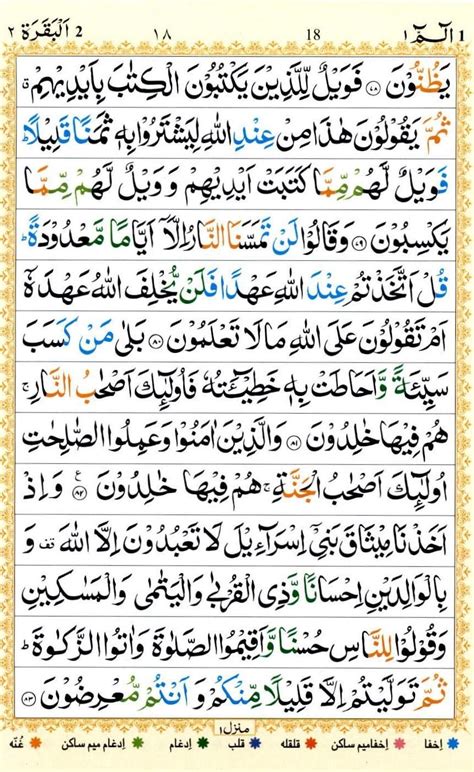 الٓـمّٓ ١ 1 18 ١٨ 2 اَلْبَقَرَة ٢
يَظُنُّوْنَ ﴿۷۸﴾ فَوَيْلٌ لِّلَّذِيْنَ يَكْتُبُوْنَ الْكِتٰبَ بِاَيْدِيْهِمْ
ثُمَّ يَقُوْلُوْنَ هٰذَا مِنْ عِنْدِ اللّٰهِ لِيَشْتَرُوْا بِهٖ ثَمَنًا قَلِيْلًا ؕ
فَوَيْلٌ لَّهُمْ مِّمَّا كَتَبَتْ اَيْدِيْهِمْ وَ وَيْلٌ لَّهُمْ مِّمَّا
يَكْسِبُوْنَ ﴿۷۹﴾ وَقَالُوْا لَنْ تَمَسَّنَا النَّارُ اِلَّاۤ اَيَّامًا مَّعْدُوْدَةً ؕ
قُلْ اَتَّخَذْتُمْ عِنْدَ اللّٰهِ عَهْدًا فَلَنْ يُّخْلِفَ اللّٰهُ عَهْدَهٗۤ
اَمْ تَقُوْلُوْنَ عَلَى اللّٰهِ مَا لَا تَعْلَمُوْنَ ﴿۸۰﴾ بَلٰى مَنْ كَسَبَ
سَيِّئَةً وَّاَحَاطَتْ بِهٖ خَطِيْٓـَٔتُهٗ فَاُولٰٓئِكَ اَصْحٰبُ النَّارِ ۚ
هُمْ فِيْهَا خٰلِدُوْنَ ﴿۸۱﴾ وَالَّذِيْنَ اٰمَنُوْا وَعَمِلُوا الصّٰلِحٰتِ
اُولٰٓئِكَ اَصْحٰبُ الْجَنَّةِ ۚ هُمْ فِيْهَا خٰلِدُوْنَ ﴿۸۲﴾ ع وَاِذْ
اَخَذْنَا مِيْثَاقَ بَنِيْۤ اِسْرَآءِيْلَ لَا تَعْبُدُوْنَ اِلَّا اللّٰهَ قف وَ
بِالْوَالِدَيْنِ اِحْسَانًا وَّذِي الْقُرْبٰى وَالْيَتٰمٰى وَالْمَسٰكِيْنِ
وَقُوْلُوْا لِلنَّاسِ حُسْنًا وَّاَقِيْمُوا الصَّلٰوةَ وَاٰتُوا الزَّكٰوةَ ؕ
ثُمَّ تَوَلَّيْتُمْ اِلَّا قَلِيْلًا مِّنْكُمْ وَ اَنْتُمْ مُّعْرِضُوْنَ ﴿۸۳﴾
منزل ١
اِخفا اِخفامیم ساکن قلقله قلب اِدغام اِدغام میم ساکن غُنّه